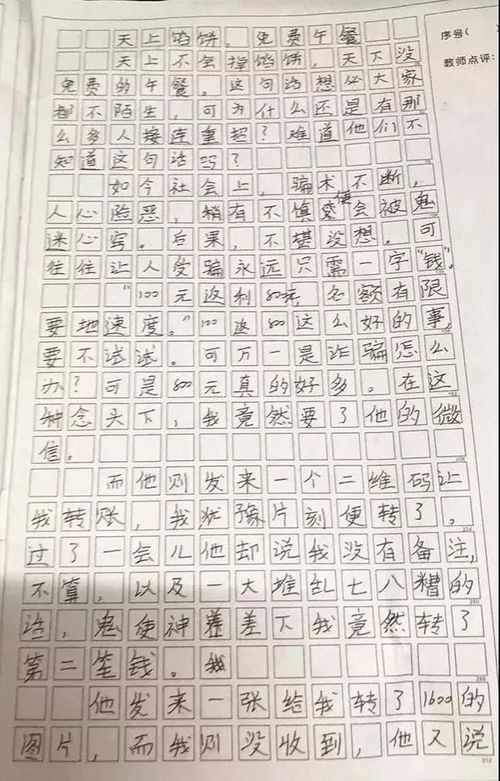 天上馅饼，免费午餐
序号(
天上不会掉馅饼，天下没
教师点评:
免费的午餐。这句话想必大家
都不陌生，可为什么还是有那
么多人接连重招？难道他们不
知道这句话吗？
如今社会上，骗术不断，
人心险恶，稍有不慎便会被鬼
迷心窍。后果，不堪设想。可
往往让人受骗永远只需一字“钱”。
“100元返利800元，名额有限
要地速度。”100返800这么好的事，
要不试试。可万一是诈骗怎么
办？可是800元真的好多。在这
种念头下，我竟然要了他的微
信。
而他则发来一个二维码让
我转账，我犹豫片刻便转了。
过了一会儿他却说我没有备注，
不算，以及一大堆乱七八糟的
话，鬼使神差差下我竟然转了
第二笔钱。我
他发来一张给我转了1600的
图片，而我则没收到，他又说